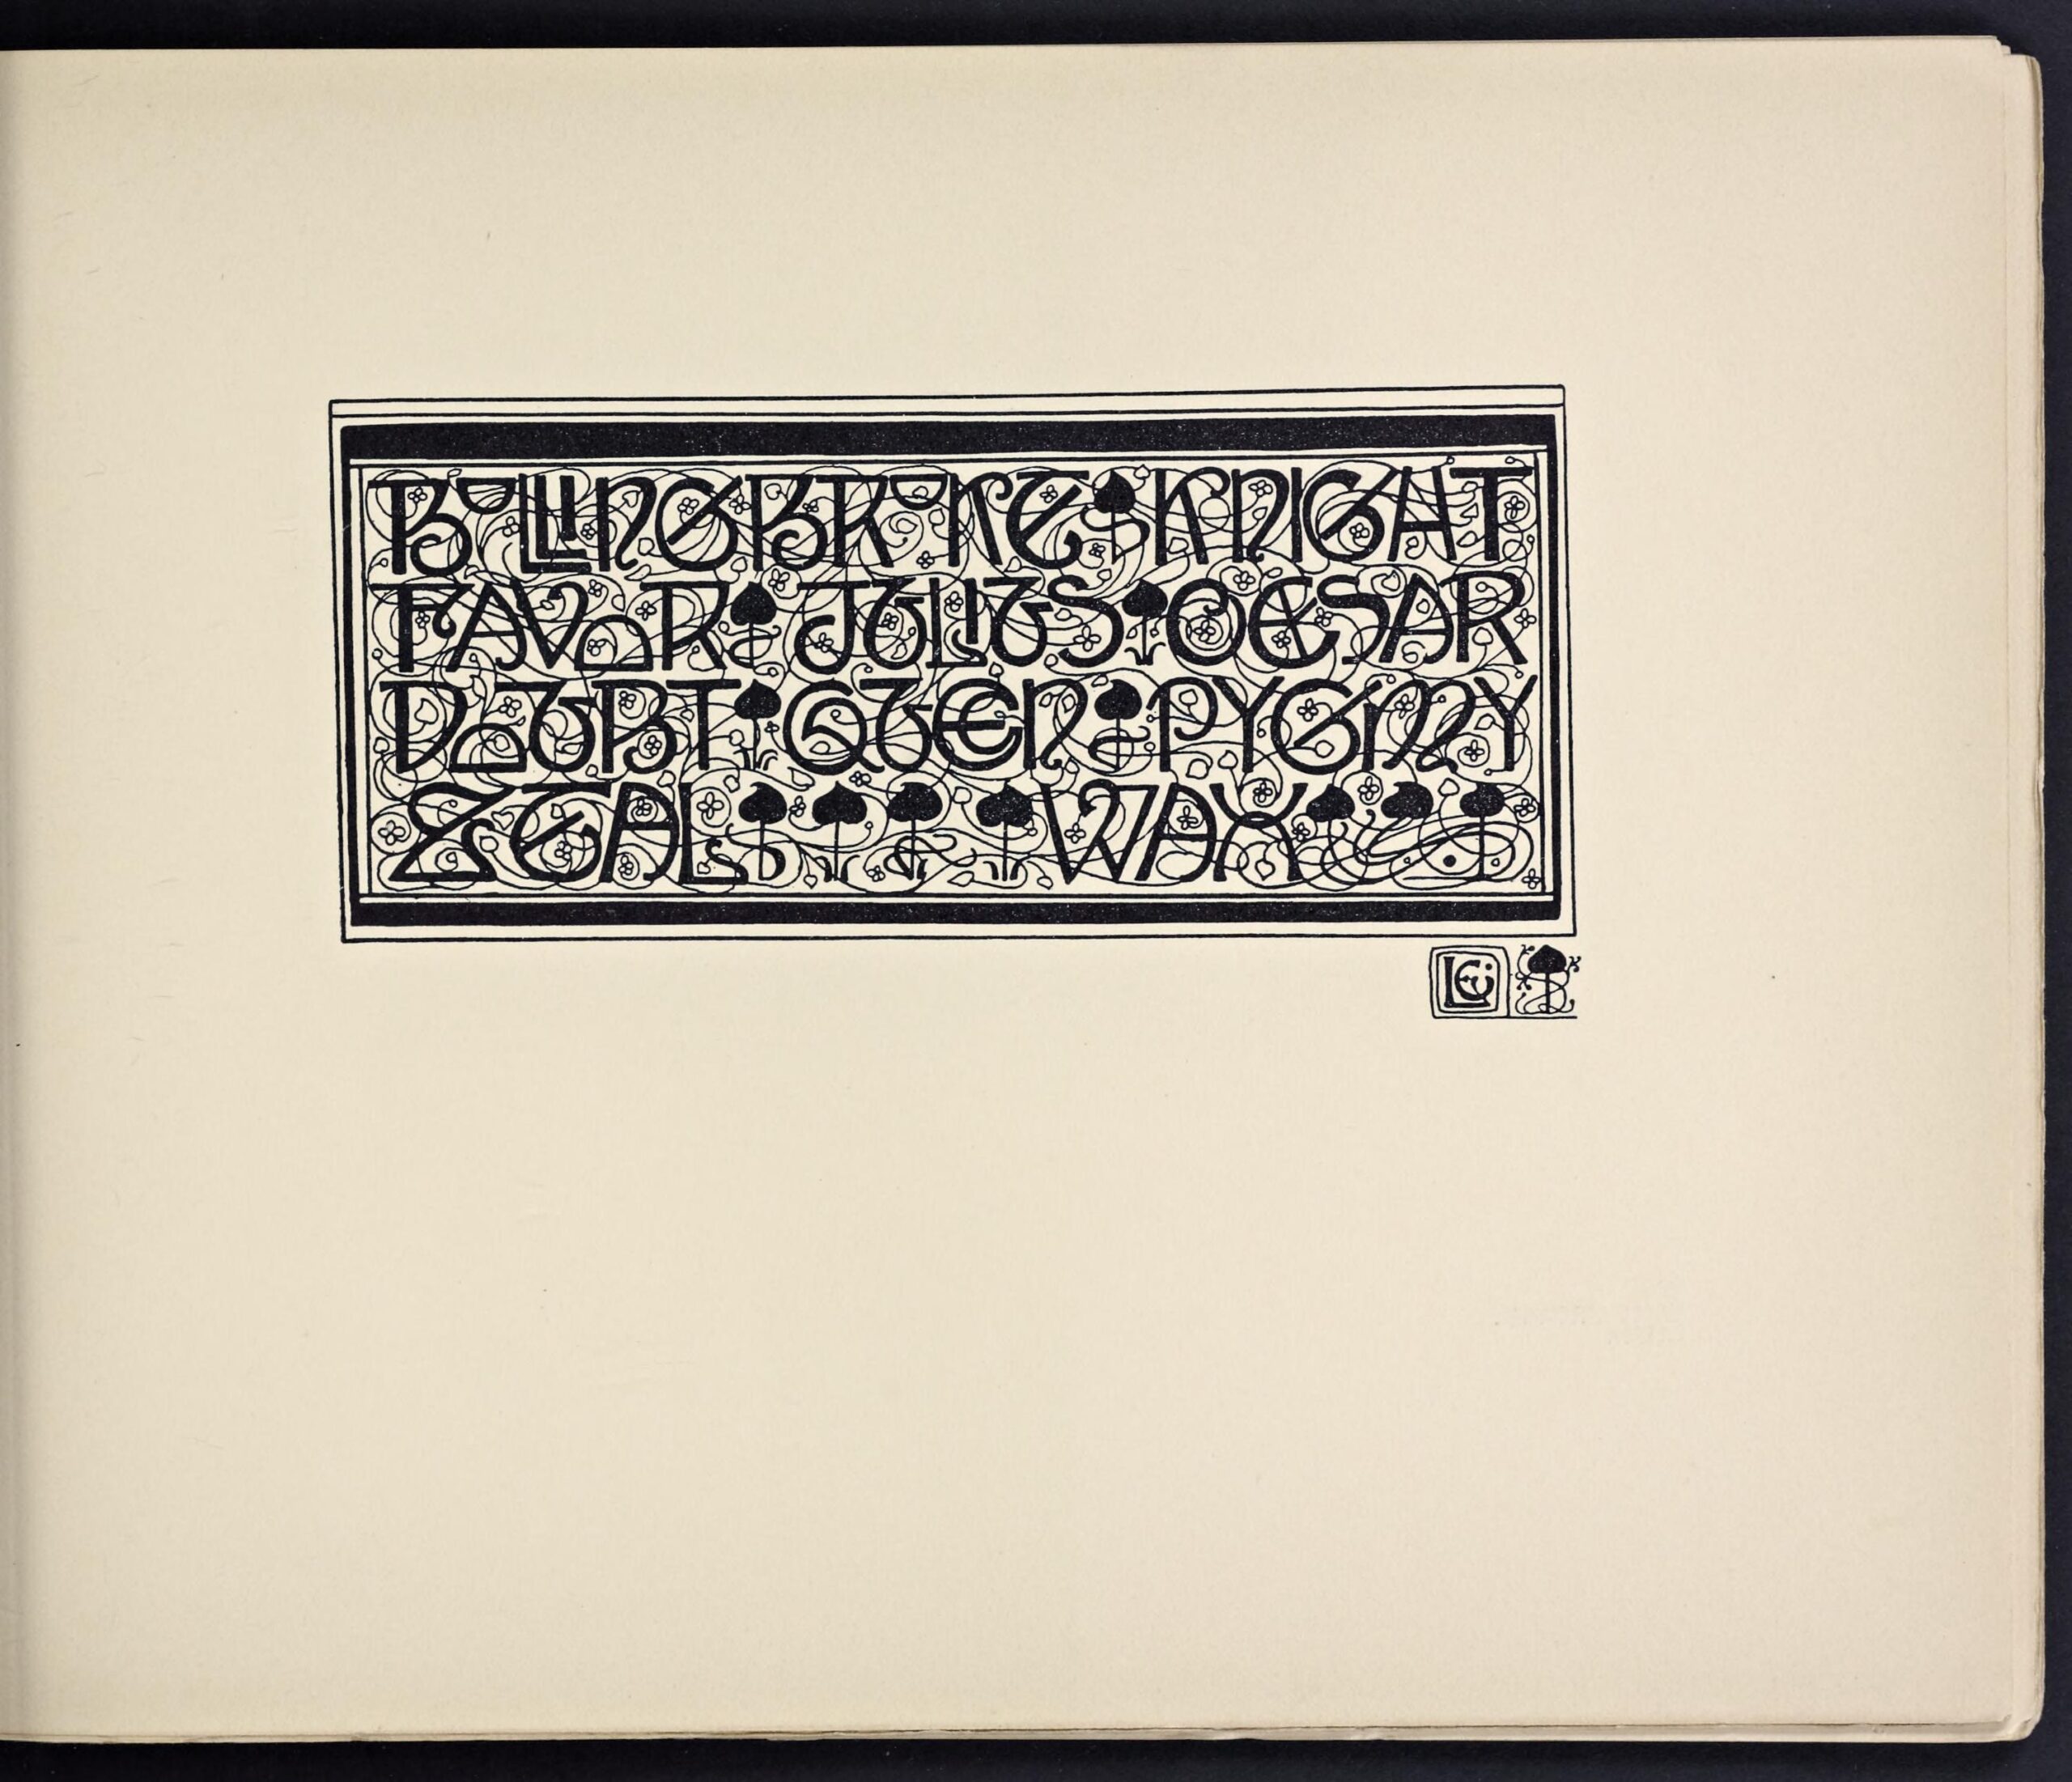 BOLLINGBROKE KNIGHT
FAVOR JULIUS CÆSAR
DOUBT QUEEN PYGMY
ZEAL WAX